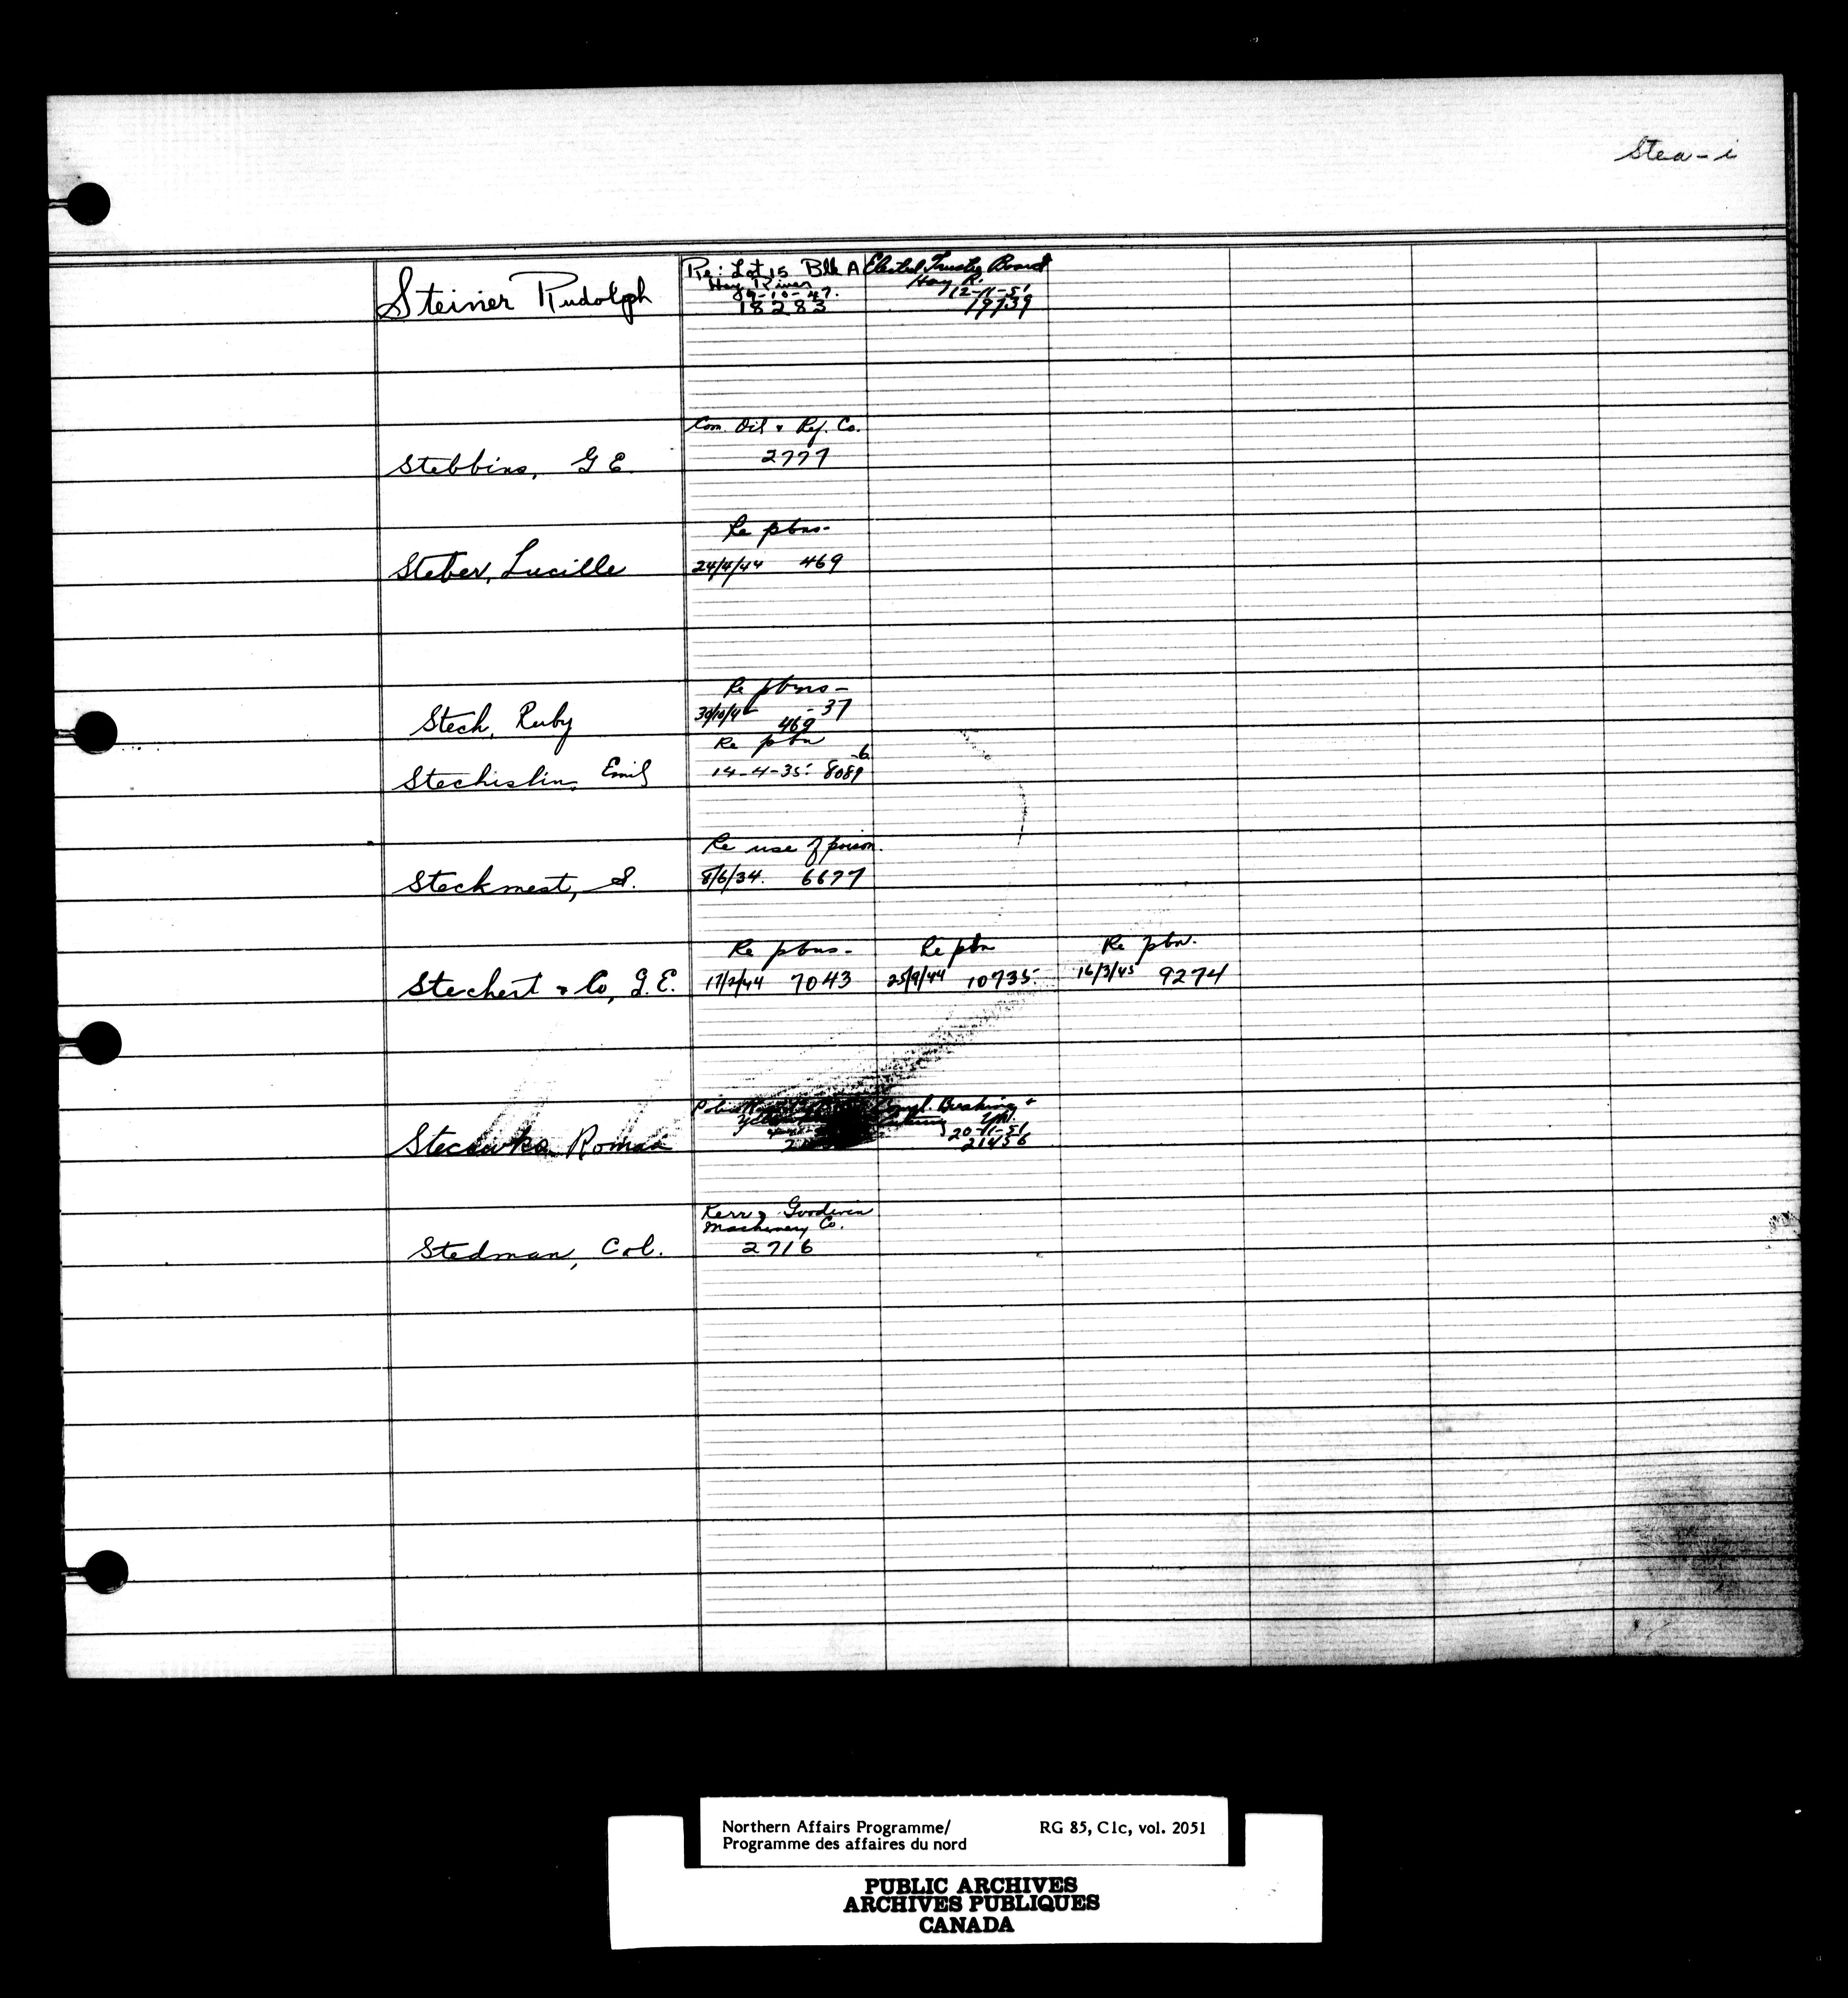 Stea - i
Steiner Rudolph
Re: Lot 15 Blk A
Hay River
09-10-47.
18283
Elected Trustee Board
Hay R.
12-11-51
19739
Com. Oil & Ref. Co.
Stebbins, G E.
2777
Re pbns-
Steber, Lucille
24/4/44 469
Re pbns-
Stech, Ruby
- 37
469
Re pbn
Emil
14-4-35. 8089
-6
Re use of poison.
Steckmest, S.
8/6/34. 6677
Re pbns-
Re pbn
Re pbn.
Stechert & Co, G.E.
17/2/44 7043
25/9/44 10735
16/3/45 9274
Roman
20-11-51
21456
Kerr & Goodwin
Machinery Co.
Stedman, Col.
2716
Northern Affairs Programme/
Programme des affaires du nord
RG 85, C1c, vol. 2051
PUBLIC ARCHIVES
ARCHIVES PUBLIQUES
CANADA